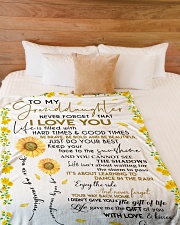 TO MY
Granddaughter
NEVER FORGET THAT
I LOVE YOU
Life is filled with
HARD TIMES & GOOD TIMES
BE BRAVE, BE BOLD AND BE BEAUTIFUL
JUST DO YOUR BEST
Keep your
face to the sunshine
AND YOU CANNOT SEE
THE SHADOWS
Life isn't about waiting for
the storm to pass
IT'S ABOUT LEARNING TO
DANCE IN THE RAIN
Enjoy the ride
And never forget
YOUR WAY BACK HOME
I DIDN'T GIVE YOU The gift of life
Life gave me the GIFT of you
WITH LOVE,